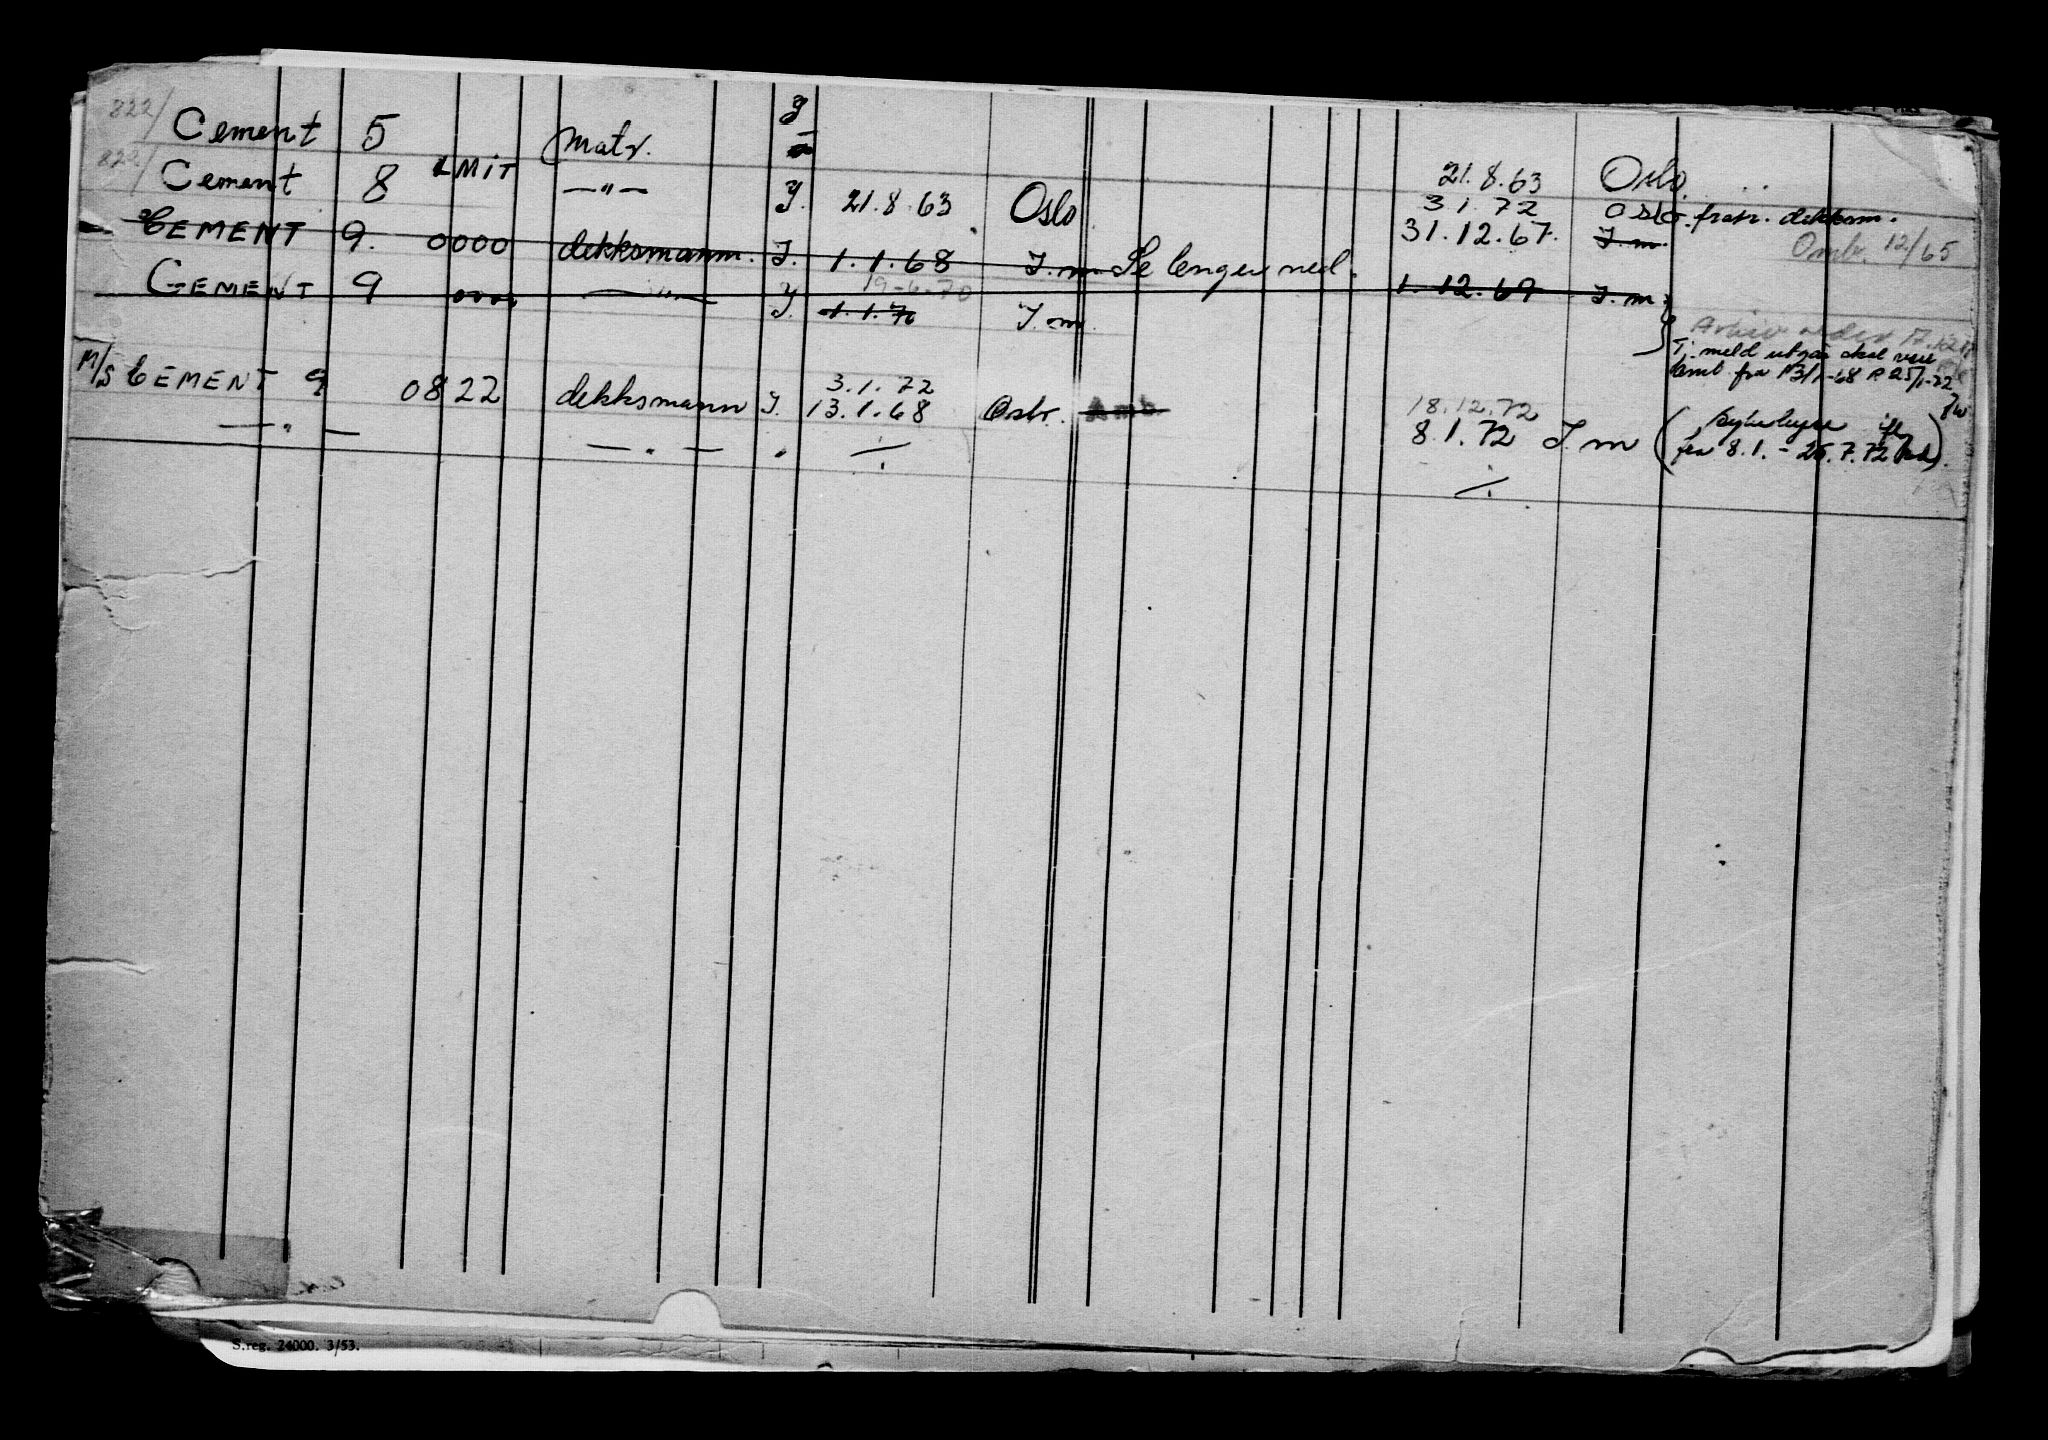 822/ Cement 5 Matr. Y 21.8.63 Oslo
822/ Cement 8 LMIT —"— Y. 21.8.63 Oslo 3.1.72 Oslo. fratr. dekksm.
CEMENT 9. 0000 dekksmann. Y. 1.1.68 I.m. Se lenger ned. 31.12.67. I.m. Omb. 12/65
CEMENT 9 0000 —"— Y. 19-6-70 1.1.70 I.m. 1.12.69 I.m.
Tj. meld utgår skal være
omb fra 13/1-68 25/1-72
M/S CEMENT 9 0822 dekksmann Y. 3.1.72 18.12.72
13.1.68 Oslo. Omb. 8.1.72 I.m (sykehyre
fra 8.1. - 25.7.72
—"— —"— " ÷ ÷
S.reg. 24000. 3/53.